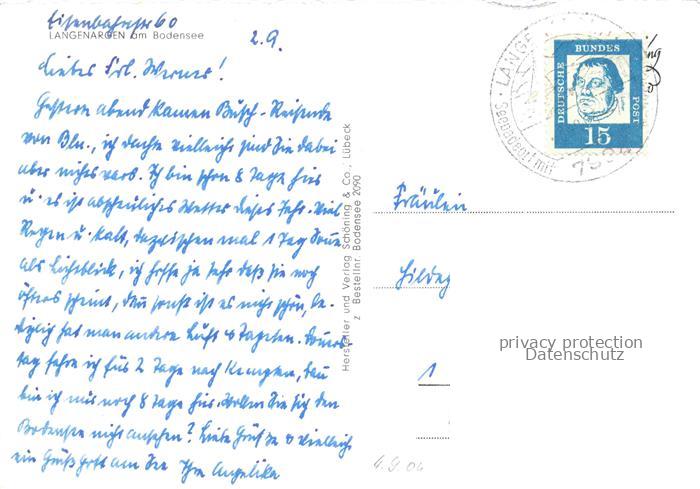 Eisenbahnstr 60
LANGENARGEN am Bodensee
2.9.
Liebes Frl. Werner!
Gestern abend kamen Busch-Reisende
von Bln., ich dachte vielleicht sind Sie dabei
aber nichts war's. Ich bin schon 8 Tage hier
u. es ist abscheuliches Wetter dieses Jahr. Viel
Regen u. kalt, dazwischen mal 1 Tag Sonne
als Lichtblick, ich hoffe ja sehr daß sie noch
öfters scheint, denn sonst ist es nicht schön, le-
diglich hat man andere Luft u Tapeten. Donners-
tag fahre ich für 2 Tage nach Kempten, dann
bin ich nur noch 8 Tage hier. Wollen Sie sich den
Bodensee nicht ansehen? Liebe Grüße u vielleicht
ein Grüß Gott am See Ihre Angelika
Hersteller und Verlag Schöning & Co., Lübeck
z Bestellnr. Bodensee 2090
DEUTSCHE BUNDES POST
15
LANGE
Fräulein
Hildeg
1
privacy protection
Datenschutz